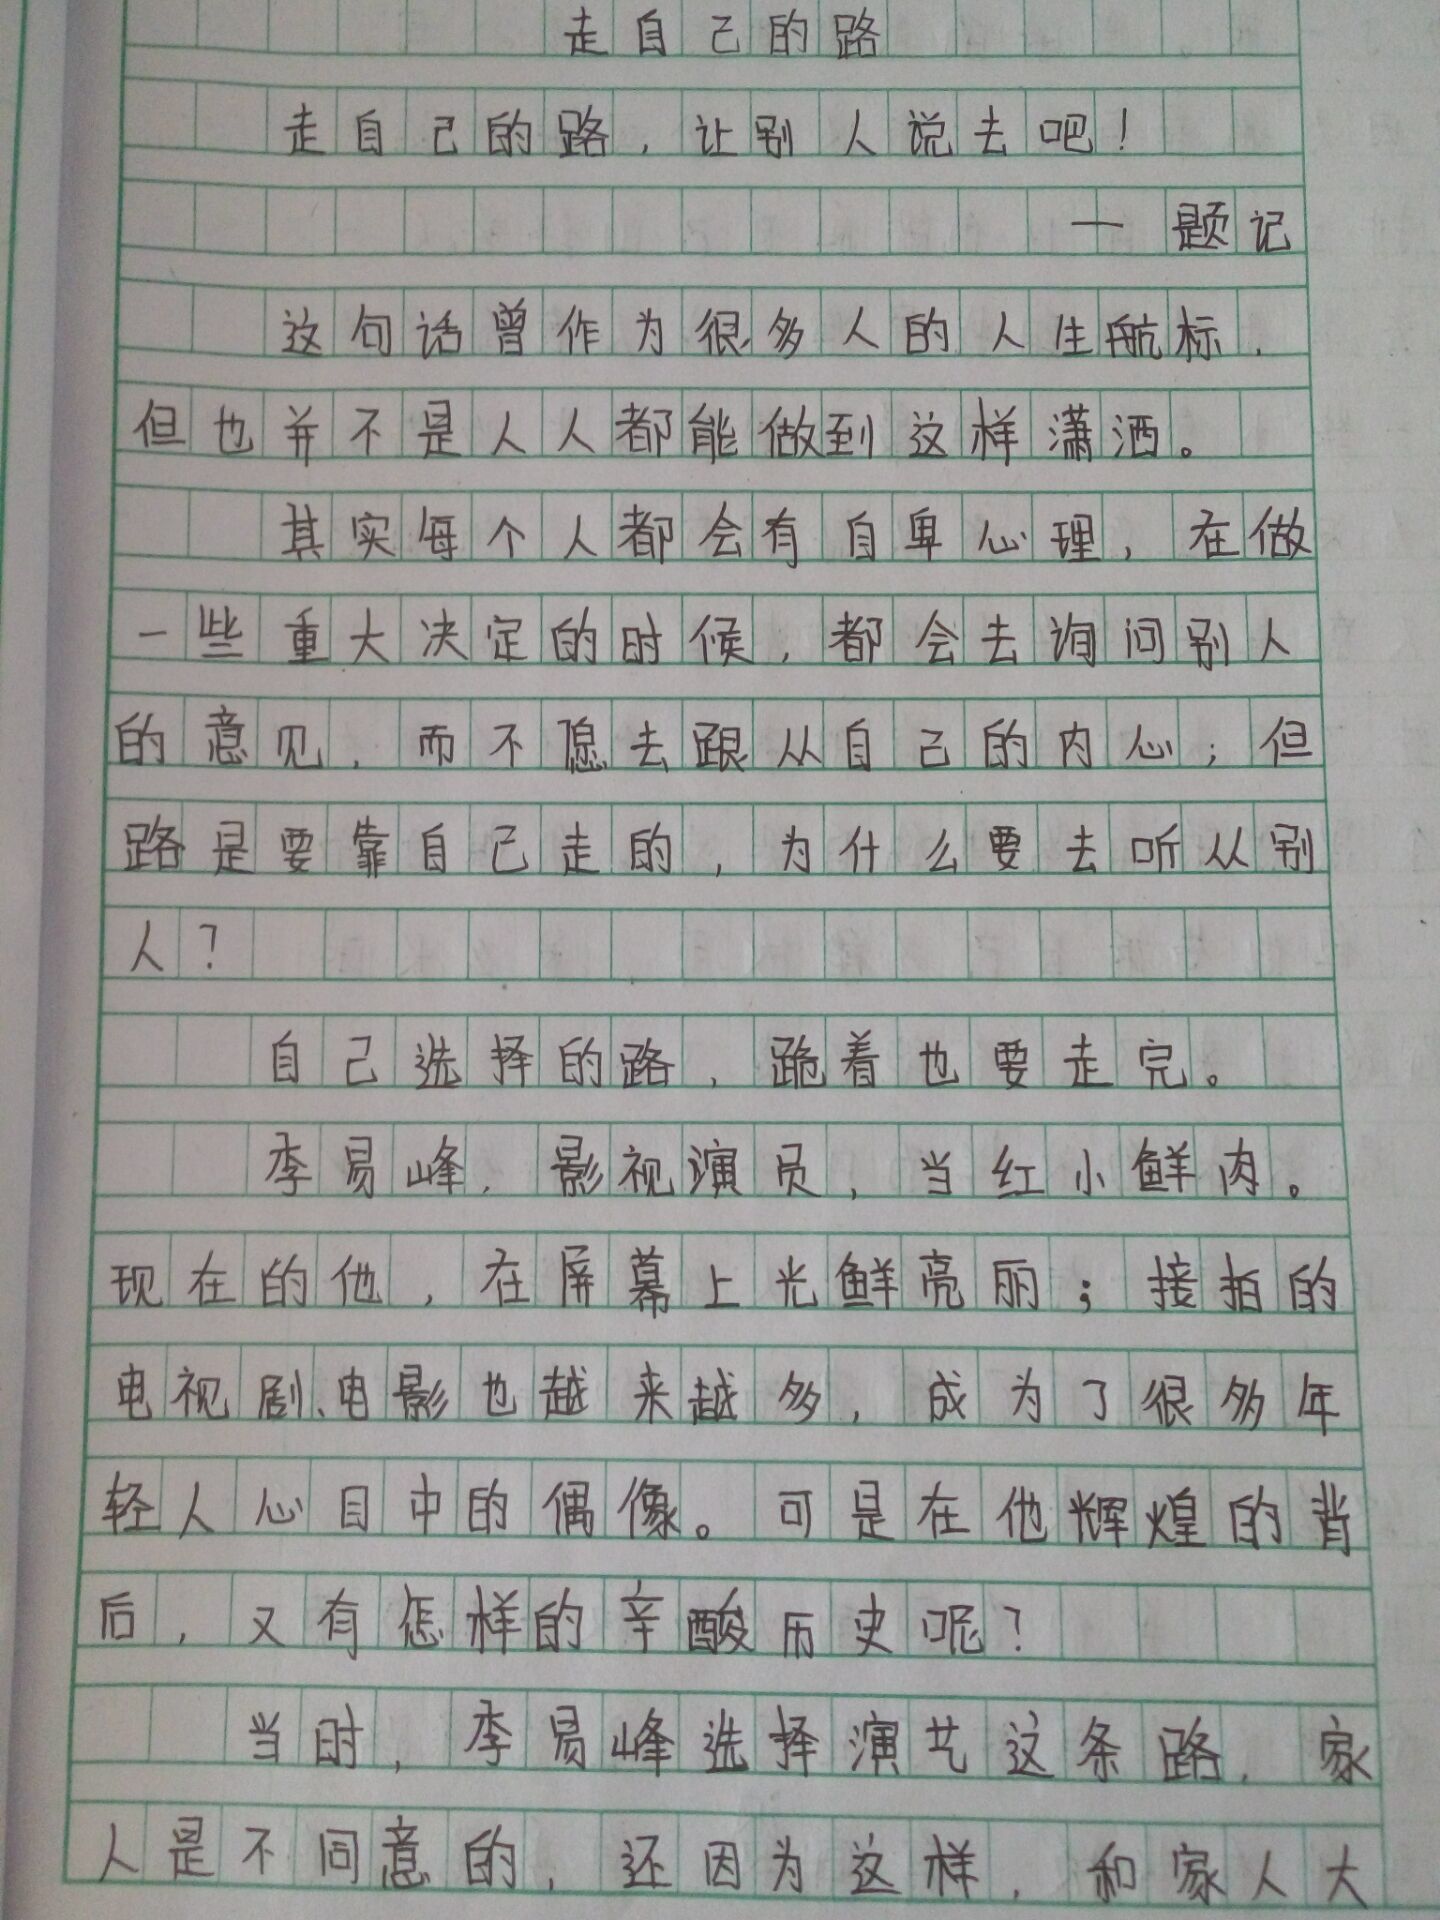 走自己的路
走自己的路，让别人说去吧！
—题记
这句话曾作为很多人的人生航标，
但也并不是人人都能做到这样潇洒。
其实每个人都会有自卑心理，在做
一些重大决定的时候，都会去询问别人
的意见，而不愿去跟从自己的内心；但
路是要靠自己走的，为什么要去听从别
人？
自己选择的路，跪着也要走完。
李易峰，影视演员，当红小鲜肉。
现在的他，在屏幕上光鲜亮丽；接拍的
电视剧、电影也越来越多，成为了很多年
轻人心目中的偶像。可是在他辉煌的背
后，又有怎样的辛酸历史呢？
当时，李易峰选择演艺这条路，家
人是不同意的，还因为这样，和家人大